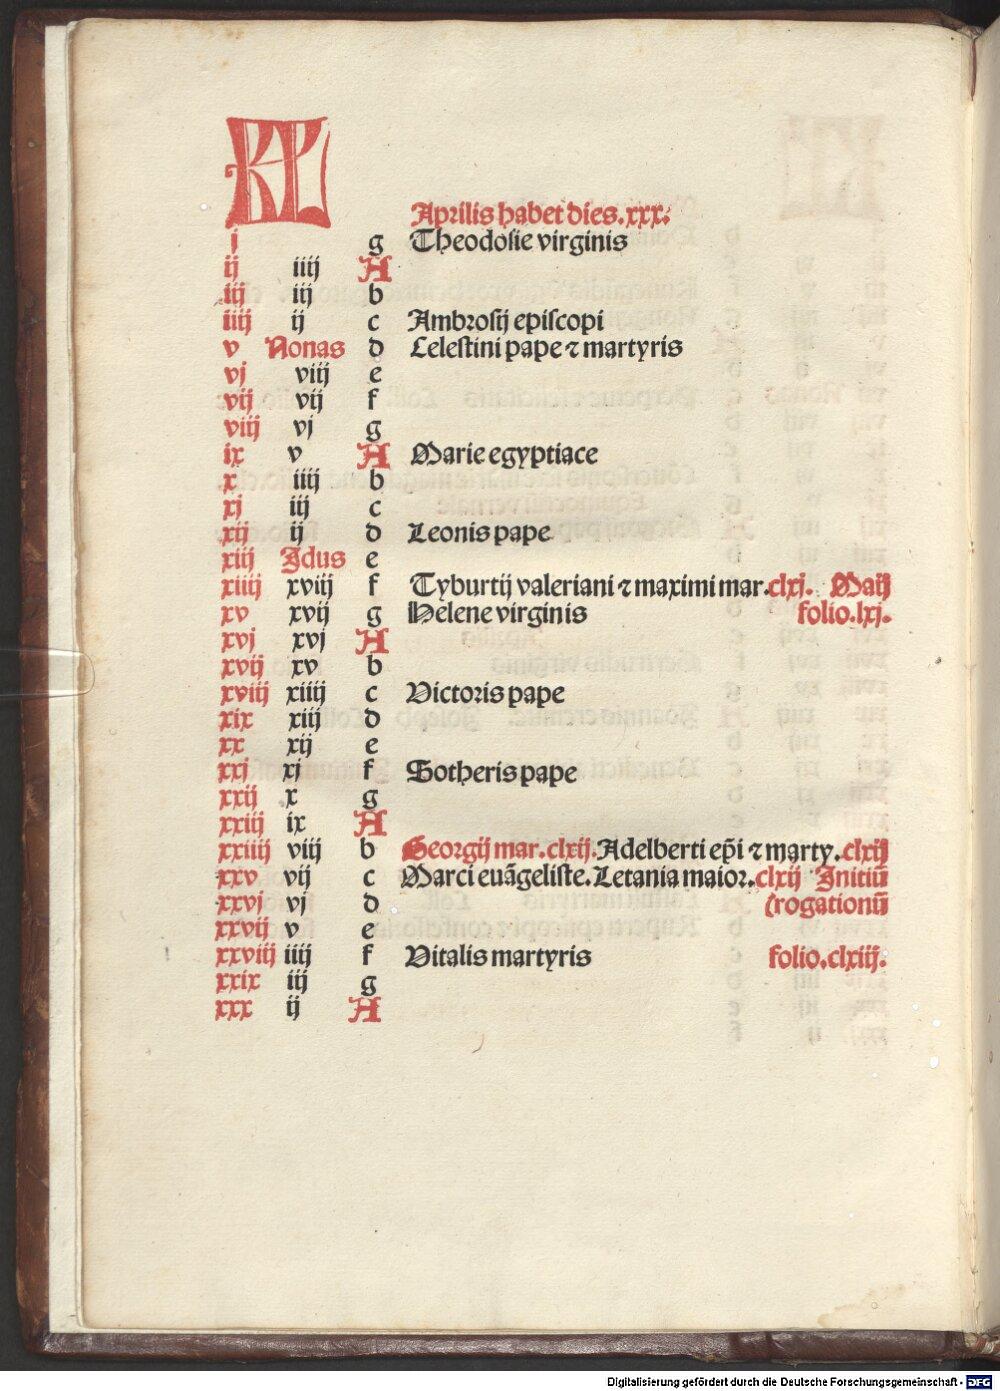 KL
Aprilis habet dies.xxx.
j g Theodosie virginis
ij iiij A
iij iij b
iiij ij c Ambrosij episcopi
v Nonas d Celestini pape ⁊ martyris
vj viij e
vij vij f
viij vj g
ix v A Marie egyptiace
x iiij b
xj iij c
xij ij d Leonis pape
xiij Idus e
xiiij xviij f Tyburtij valeriani ⁊ maximi mar.clxj. Maij
xv xvij g Helene virginis folio.lxj.
xvj xvj A
xvij xv b
xviij xiiij c Victoris pape
xix xiij d
xx xij e
xxj xj f Sotheris pape
xxij x g
xxiij ix A
xxiiij viij b Georgij mar.clxij. Adelberti ep̄i ⁊ marty.clxij
xxv vij c Marci euāgeliste. Letania maior.clxij Initiū
xxvj vj d rogationū
xxvij v e
xxviij iiij f Vitalis martyris folio.clxiij.
xxix iij g
xxx ij A
Digitalisierung gefördert durch die Deutsche Forschungsgemeinschaft - DFG